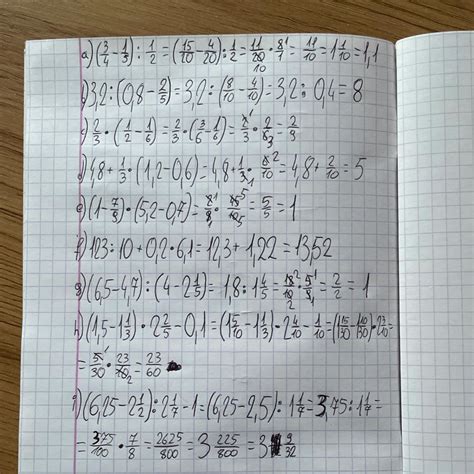 a) (3/4 - 1/5) : 1/2 = (15/20 - 4/20) : 1/2 = 11/20 · 2/1 = 11/10 = 1 1/10 = 1,1
b) 3,2 : (0,8 - 2/5) = 3,2 : (8/10 - 4/10) = 3,2 : 0,4 = 8
c) 2/3 · (1/2 - 1/6) = 2/3 · (3/6 - 1/6) = 2/3 · 2/6 = 2/9
d) 4,8 + 1/3 · (1,2 - 0,6) = 4,8 + 1/3 · 6/10 = 4,8 + 2/10 = 5
e) (1 - 7/9) · (5,2 - 0,7) =
f) 123 : 10 + 0,2 · 6,1 = 12,3 + 1,22 = 13,52
g) (6,5 - 4,7) : (4 - 2 1/5) = 1,8 : 1 4/5 = 18/10 · 5/9 = 2/2 = 1
h) (1,5 - 1 1/3) · 2 2/5 - 0,1 = (1 5/10 - 1 1/3) · 2 4/10 - 1/10 =
= 5/30 · 23/10 = 23/60
i) (6,25 - 2 1/2) : 2 1/7 - 1 = (6,25 - 2,5) : 1 1/7 = 3,75 : 1 1/7 =
= 375/100 · 7/8 = 2625/800 = 3 225/800 = 3 9/32